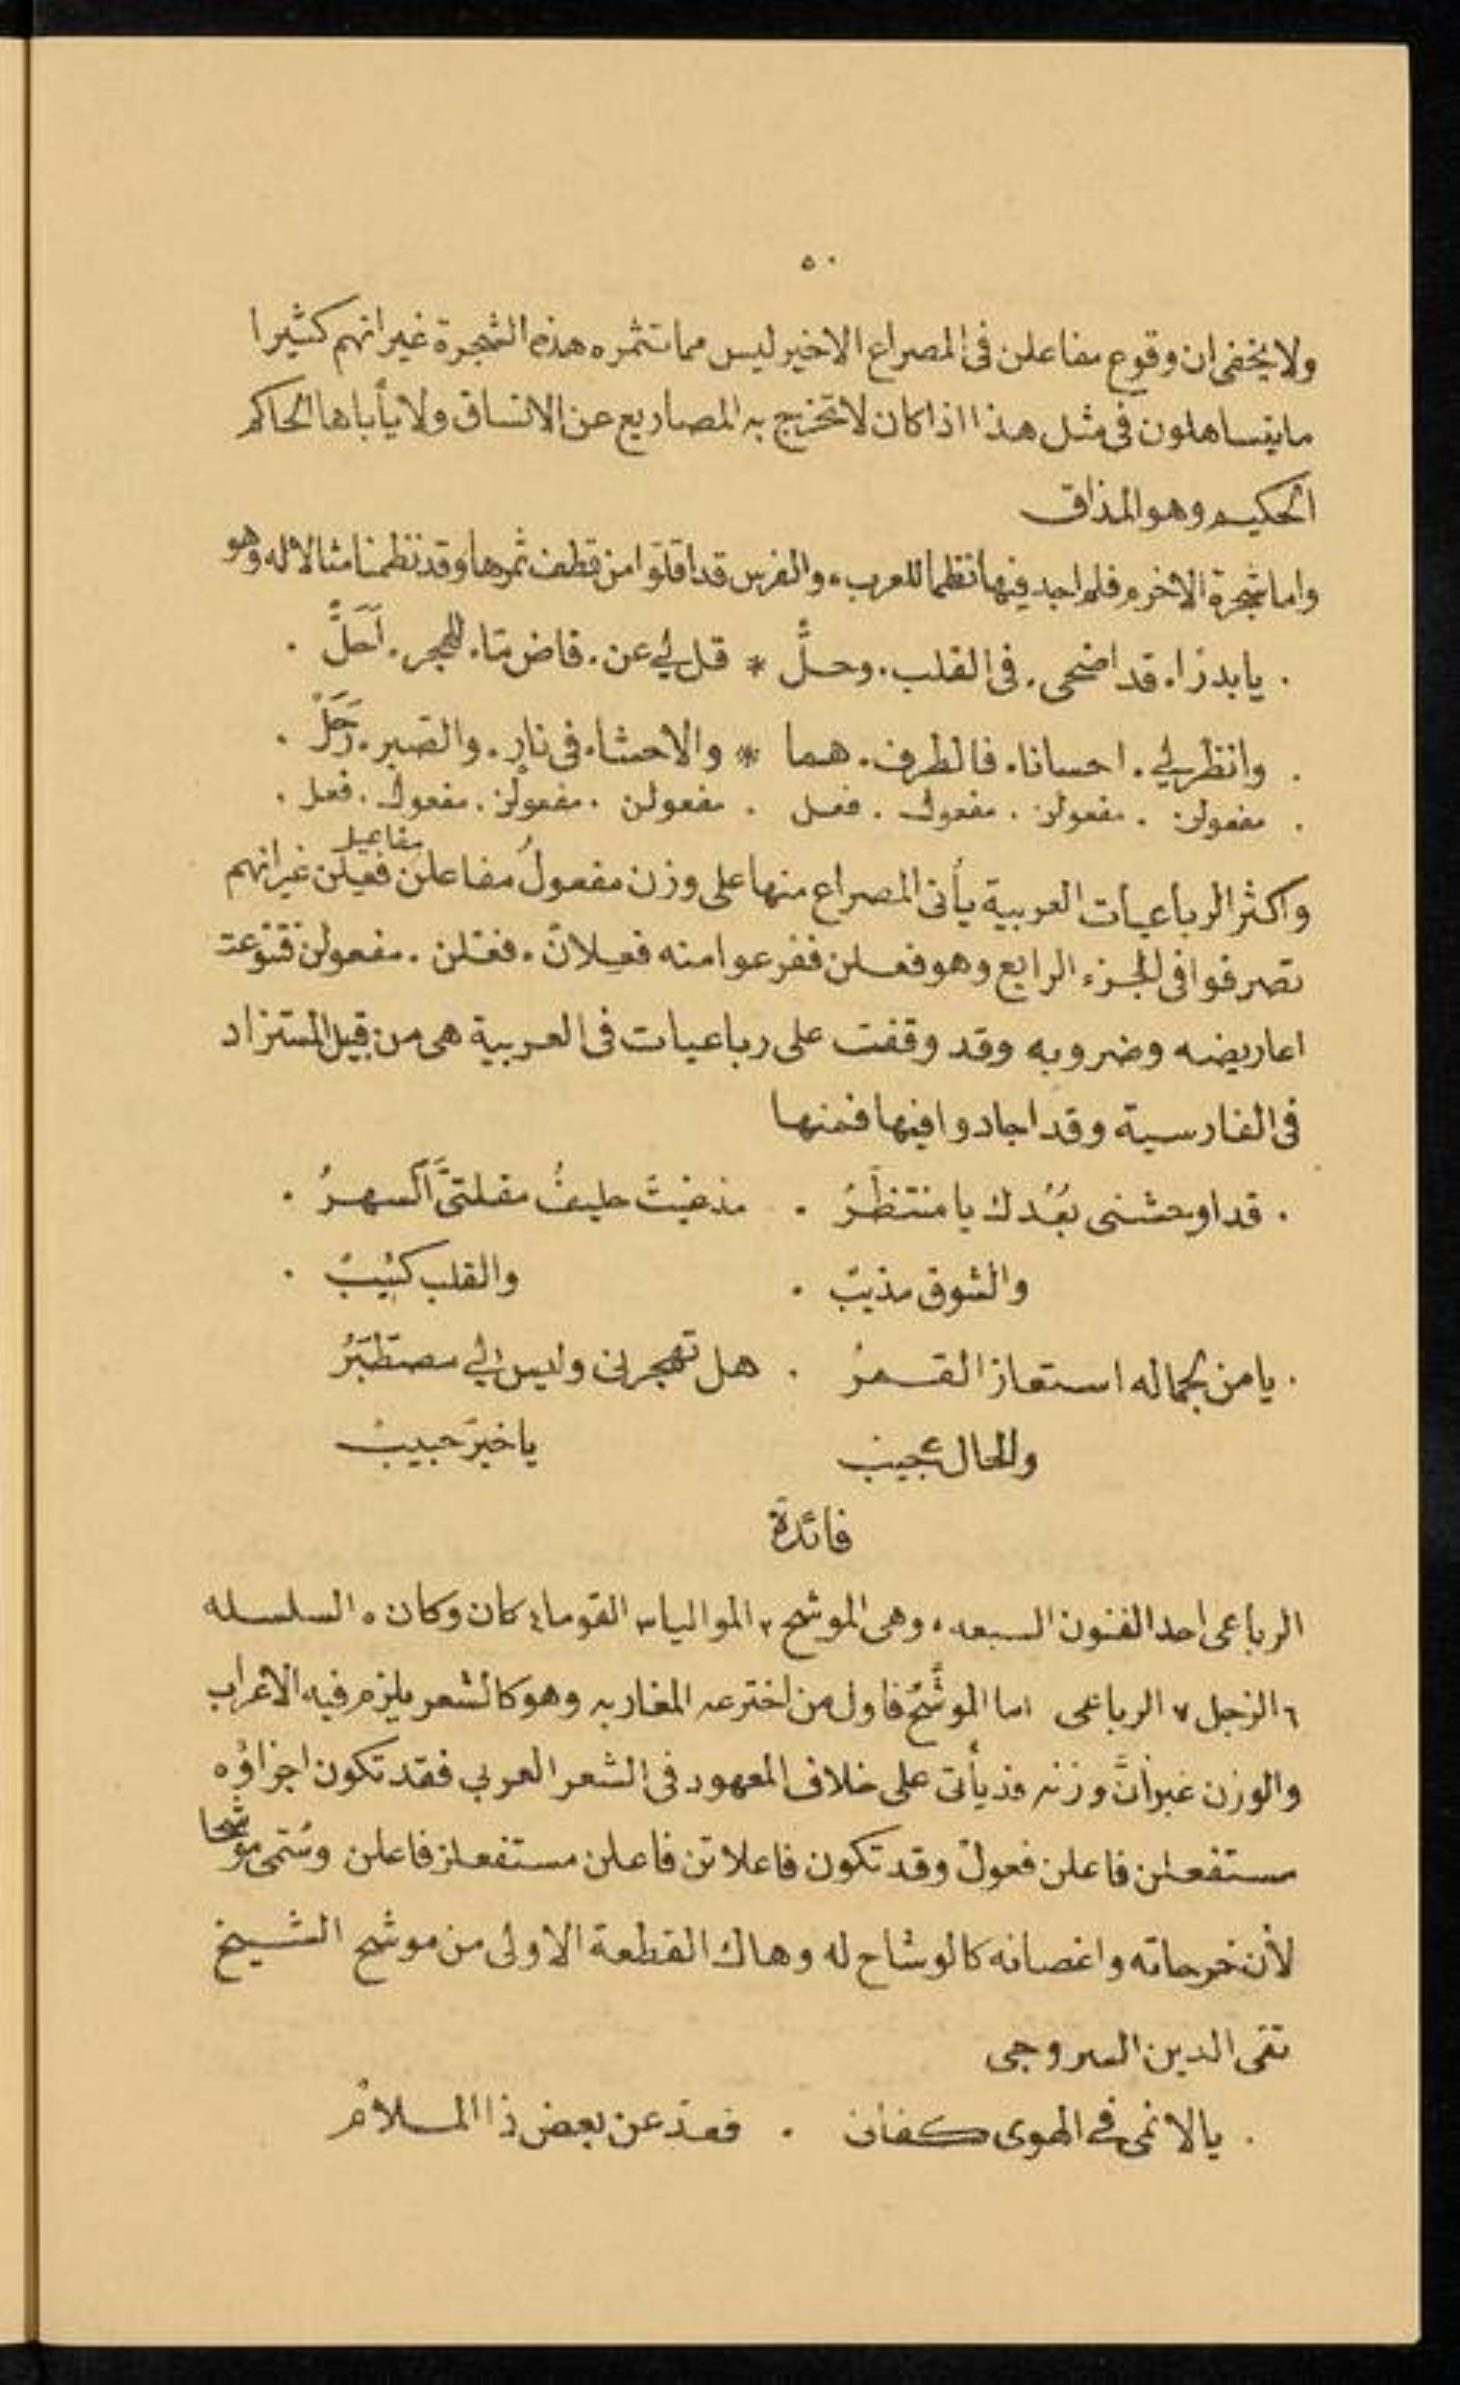 ٥٠
ولا يخفى ان وقوع مفاعلن فى المصراع الاخير ليس مما تثمره هذه الشجرة غير انهم كثيرا
ما يتساهلون فى مثل هذا اذا كان لا تخرج به المصاريع عن الاتساق ولا يأباها الحاكم
الحكيم وهو المذاق
واما شجرة الاخرم فلم اجد فيها نظما للعرب. والفرس قد اقلّوا من قطف ثمرها وقد نظمنا مثالا له وهو
. يا بدرًا. قد اضحى. فى القلب. وحلَّ * قل لي عن. فاض متا. للهجر. اَحَلَّ .
. وانظر لي. احسانا. فالطرف. هما * والاحشا. فى نارٍ. والصبر. رَحَلْ .
. مفعولن . مفعولن . مفعول . فعل . مفعولن . مفعولن . مفعول . فعل .
واكثر الرباعيات العربية يأتى المصراع منها على وزن مفعولُ مفاعلن مفاعيل فعلن غير انهم
تصرفوا فى الجزء الرابع وهو فعلن ففرعوا منه فعلان. فعْلن . مفعولن فتنوعت
اعاريضه وضروبه وقد وقفت على رباعيات فى العربية هى من قبيل المستزاد
فى الفارسية وقد اجادوا فيها فمنها
. قد اوحشنى بُعْدك يا منتظَرُ . مذ غبتَ حليفُ مقلتىَّ السهرُ .
والشوق مذيبْ . والقلب كئيبْ .
. يا من بجماله استعاز القمرُ . هل تهجرنى وليس لي مصطَبَرُ
والحال عجيب ياخيرَ حبيبْ
فائدة
الرباعى احد الفنون السبعه وهى ١ الموشح ٢ المواليا ٣ القوما ٤ كان وكان ٥ السلسله
٦ الزجل ٧ الرباعى اما الموشَّح فاول من اخترعه المغاربه وهو كالشعر يلزم فيه الاعراب
والوزن غير أنَّ وزنه قد يأتى على خلاف المعهود فى الشعر العربي فقد تكون اجزاؤه
مستفعلن فاعلن فعولن وقد تكون فاعلاتن فاعلن مستفعلن فاعلن وسُمّى موشحا
لأن خرجاته واغصانه كالوشاح له وهاك القطعة الاولى من موشح الشيخ
تقى الدين السروجى
. يا لائمى فى الهوى كفانى . فعدّ عن بعض ذا الملامْ